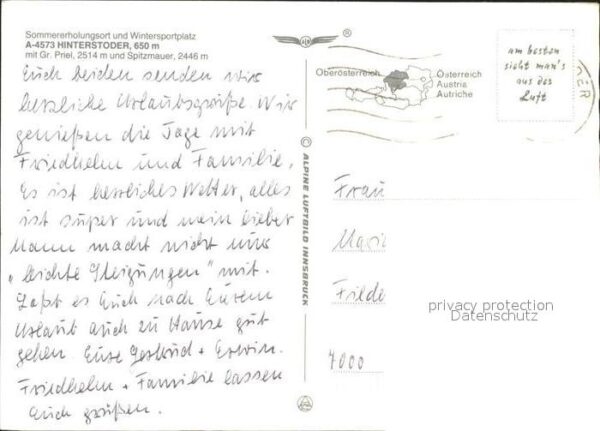 Sommererholungsort und Wintersportplatz
A-4573 HINTERSTODER, 650 m
mit Gr. Priel, 2514 m und Spitzmauer, 2446 m
Euch beiden senden wir
herzliche Urlaubsgrüße. Wir
genießen die Tage mit
Friedhelm und Familie.
Es ist herrliches Wetter, alles
ist super und mein lieber
Mann macht nicht nur
"leichte Steigungen" mit.
Laßt es Euch nach Eurem
Urlaub auch zu Hause gut
gehen. Eure Gertrud + Erwin.
Friedhelm + Familie lassen
Euch grüßen.
®
Oberösterreich
Österreich
Austria
Autriche
am besten
sieht man's
aus der
Luft
© ALPINE LUFTBILD INNSBRUCK
Frau
Marie
Filde
7000
privacy protection
Datenschutz